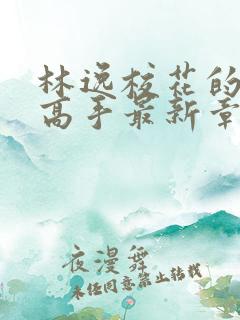 林逸校花的
高手最新章
夜漫舞
未经同意禁止转载